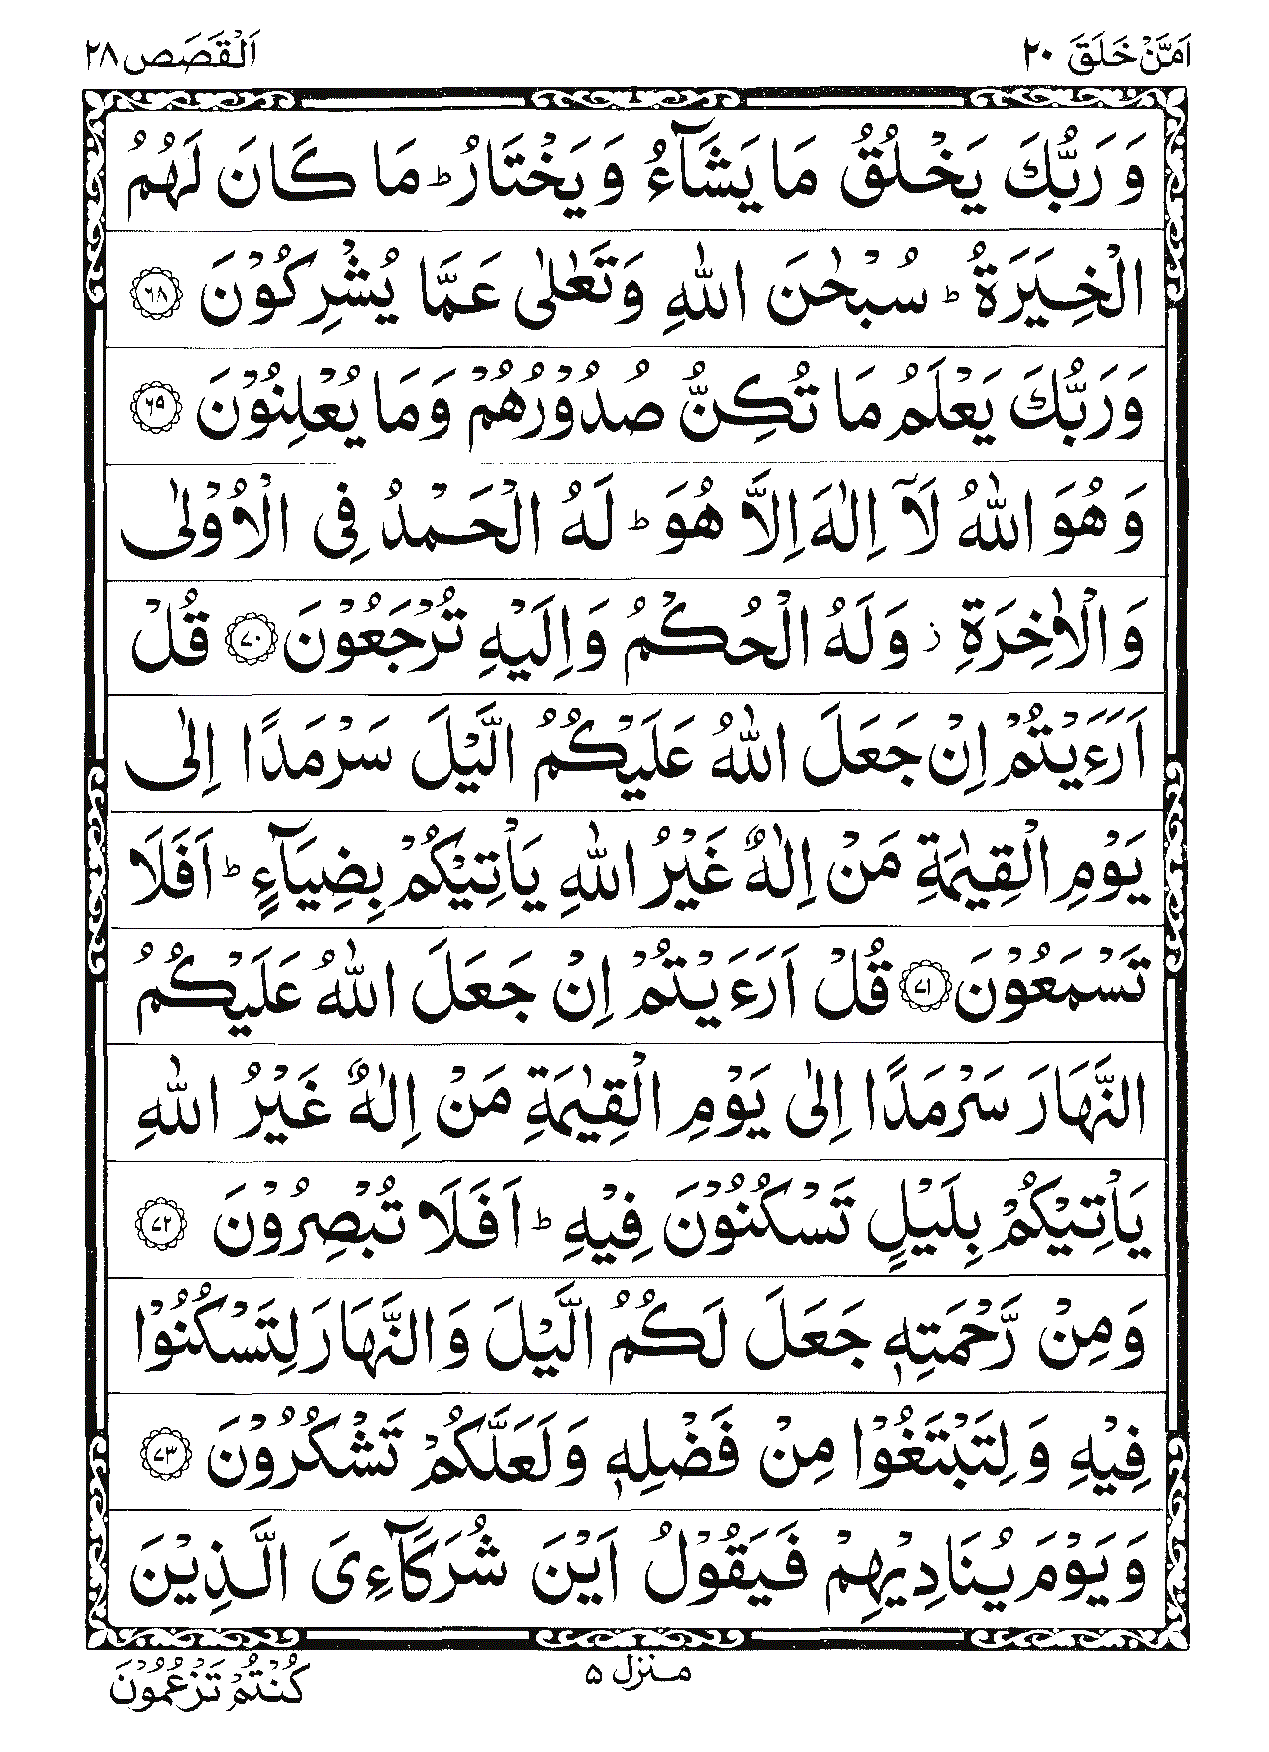 اَمَّنْ خَلَقَ ٢٠
اَلْقَصَص ٢٨
وَ رَبُّكَ يَخْلُقُ مَا يَشَآءُ وَ يَخْتَارُ ؕ مَا كَانَ لَهُمُ
الْخِيَرَةُ ؕ سُبْحٰنَ اللّٰهِ وَتَعٰلٰى عَمَّا يُشْرِكُوْنَ ﴿٦٨﴾
وَرَبُّكَ يَعْلَمُ مَا تُكِنُّ صُدُوْرُهُمْ وَمَا يُعْلِنُوْنَ ﴿٦٩﴾
وَ هُوَ اللّٰهُ لَاۤ اِلٰهَ اِلَّا هُوَ ؕ لَهُ الْحَمْدُ فِى الْاُوْلٰى
وَالْاٰخِرَةِ ؗ وَلَهُ الْحُكْمُ وَاِلَيْهِ تُرْجَعُوْنَ ﴿٧٠﴾ قُلْ
اَرَءَيْتُمْ اِنْ جَعَلَ اللّٰهُ عَلَيْكُمُ الَّيْلَ سَرْمَدًا اِلٰى
يَوْمِ الْقِيٰمَةِ مَنْ اِلٰهٌ غَيْرُ اللّٰهِ يَاْتِيْكُمْ بِضِيَآءٍ ؕ اَفَلَا
تَسْمَعُوْنَ ﴿٧١﴾ قُلْ اَرَءَيْتُمْ اِنْ جَعَلَ اللّٰهُ عَلَيْكُمُ
النَّهَارَ سَرْمَدًا اِلٰى يَوْمِ الْقِيٰمَةِ مَنْ اِلٰهٌ غَيْرُ اللّٰهِ
يَاْتِيْكُمْ بِلَيْلٍ تَسْكُنُوْنَ فِيْهِ ؕ اَفَلَا تُبْصِرُوْنَ ﴿٧٢﴾
وَمِنْ رَّحْمَتِهٖ جَعَلَ لَكُمُ الَّيْلَ وَالنَّهَارَ لِتَسْكُنُوْا
فِيْهِ وَلِتَبْتَغُوْا مِنْ فَضْلِهٖ وَلَعَلَّكُمْ تَشْكُرُوْنَ ﴿٧٣﴾
وَيَوْمَ يُنَادِيْهِمْ فَيَقُوْلُ اَيْنَ شُرَكَآءِىَ الَّذِيْنَ
منزل ۵
كُنْتُمْ تَزْعُمُوْنَ